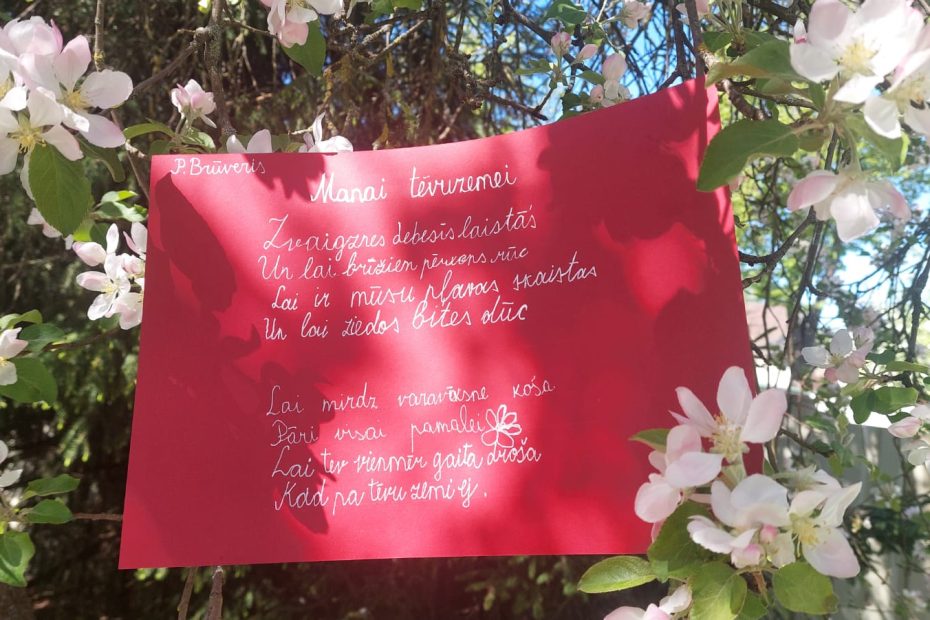 P. Brūveris
Manai tēvuzemei
Zvaigznes debesīs laistās
Un lai brīžien pērkons rūc
Lai ir mūsu pļavas skaistas
Un lai ziedos bites dūc
Lai mirdz varavīksne koša
Pāri visai pamalei
Lai tev vienmēr gaita droša
Kad pa tēvu zemi ej.